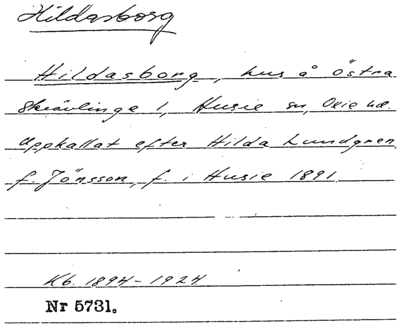 Hildasborg
Hildasborg, hus å Östra
Skrävlinge 1, Husie sn, Oxie hd.
Uppkallat efter Hilda Lundgren
f. Jönsson, f. i Husie 1891
Kb. 1894-1924
Nr 5731.